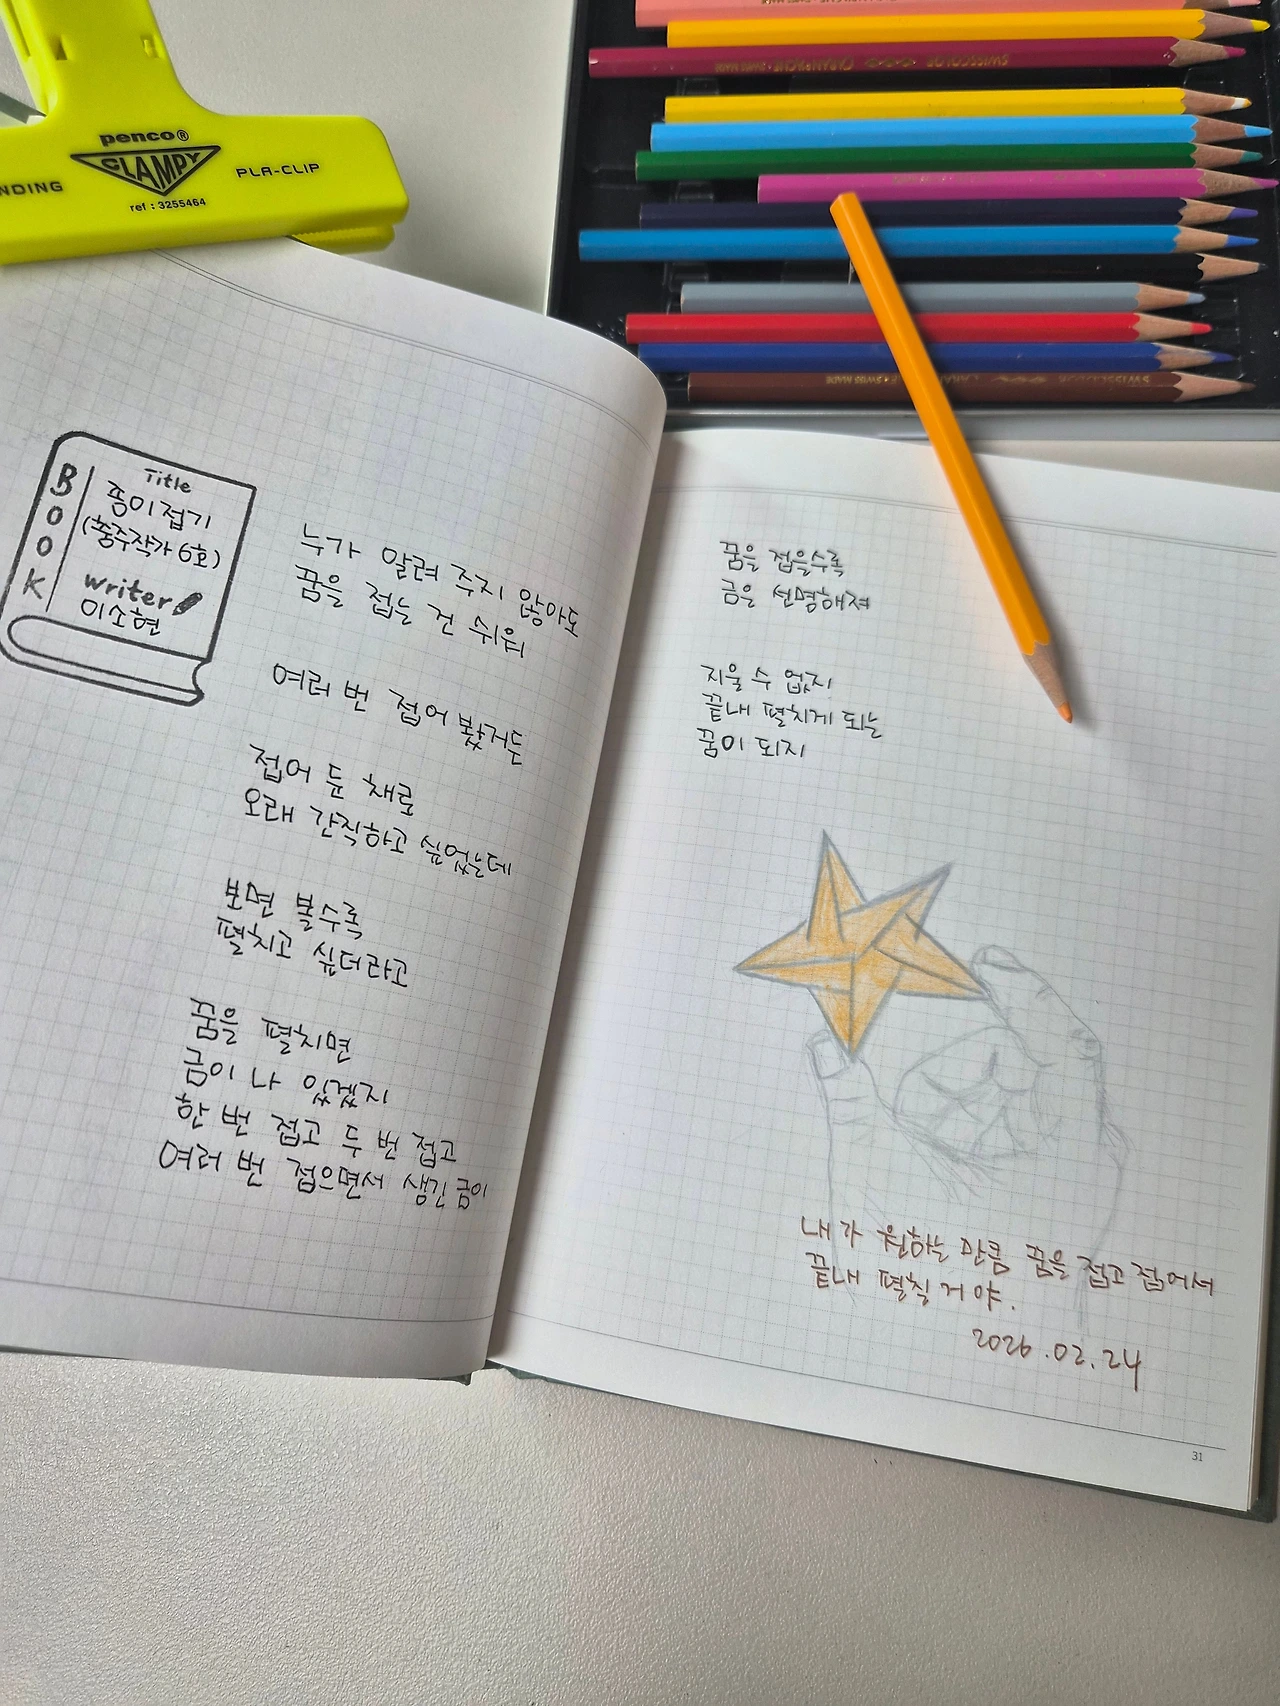 penco®
CLAMPY
NDING
PLA-CLIP
ref : 3255464
SWISSCOLOR
CARAN D'ACHE
SWISS MADE
BOOK
Title
종이접기
(충주작가 6호)
writer
이소현
누가 알려 주지 않아도
꿈을 접는 건 쉬워
여러 번 접어 봤거든
접어 둔 채로
오래 간직하고 싶었는데
보면 볼수록
펼치고 싶더라고
꿈을 펼치면
금이 나 있겠지
한 번 접고 두 번 접고
여러 번 접으면서 생긴 금이
꿈을 접을수록
금은 선명해져
지울 수 없지
끝내 펼치게 되는
꿈이 되지
내가 원하는 만큼 꿈을 접고 접어서
끝내 펼칠 거야.
2026.02.24
31